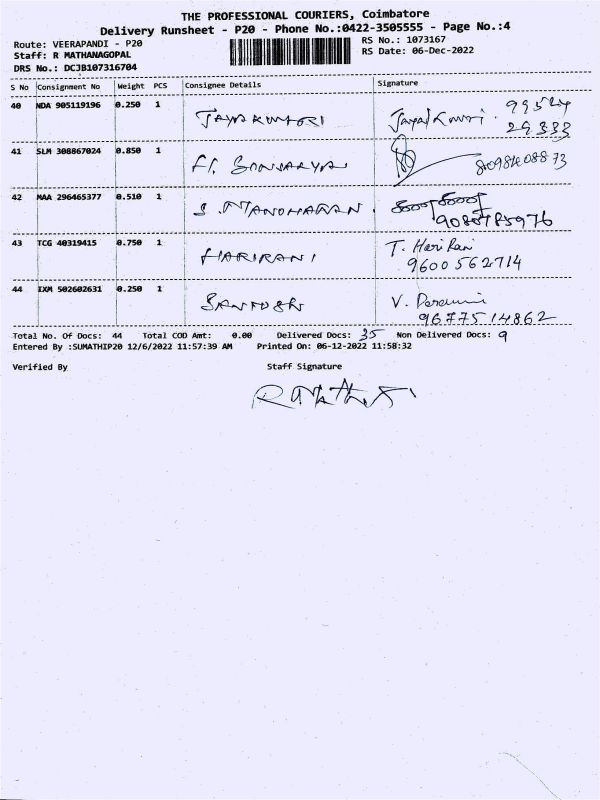 THE PROFESSIONAL COURIERS, Coimbatore
Delivery Runsheet - P20 - Phone No.:0422-3505555 - Page No.:4
Route: VEERAPANDI - P20 RS No.: 1073167
Staff: R MATHANAGOPAL RS Date: 06-Dec-2022
DRS No.: DCJB107316704
S No Consignment No Weight PCS Consignee Details Signature
40 NDA 905119196 0.250 1 JAYAKUMARI 99524
29333
41 SLM 308867024 0.850 1
42 MAA 296465377 0.510 1 S. MANOHARAN
43 TCG 40319415 0.750 1 HARIRANI T. Hari Rani
9600562714
44 IXM 502602631 0.250 1 SANTOSH V.
9677514862
Total No. Of Docs: 44 Total COD Amt: 0.00 Delivered Docs: 35 Non Delivered Docs: 9
Entered By :SUMATHIP20 12/6/2022 11:57:39 AM Printed On: 06-12-2022 11:58:32
Verified By Staff Signature